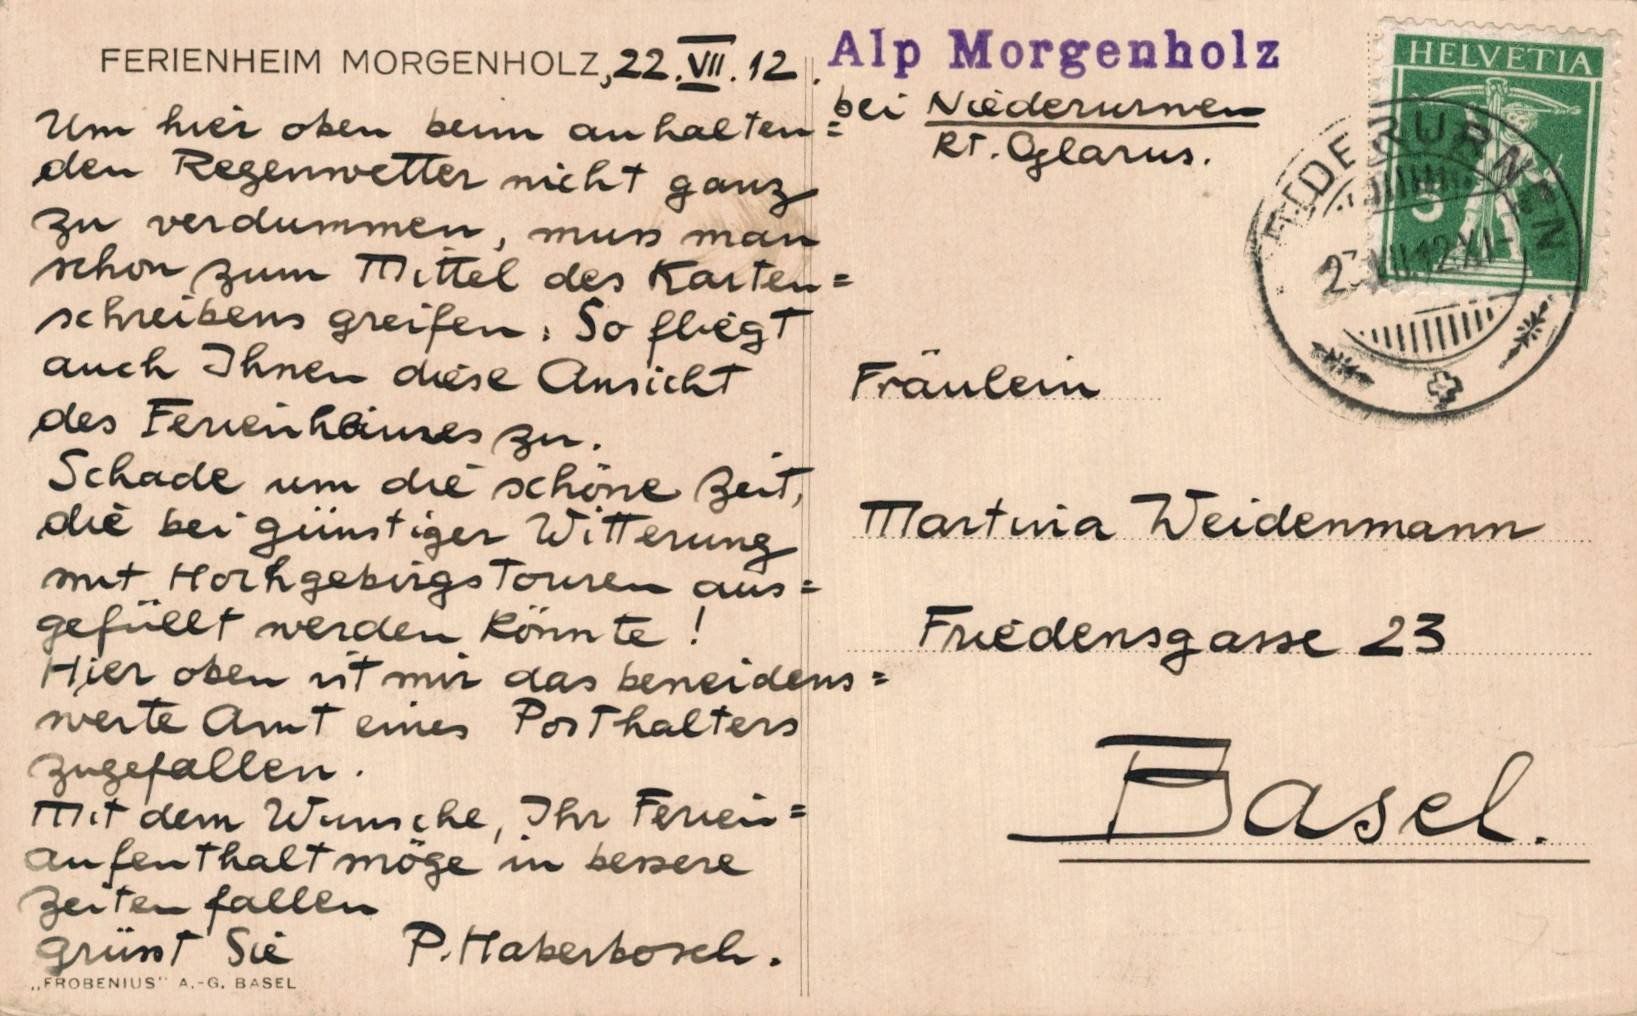 FERIENHEIM MORGENHOLZ, 22. VII. 12.
Um hier oben beim anhalten=
den Regenwetter nicht ganz
zu verdummen, muss man
schon zum Mittel des Karten=
schreibens greifen. So fliegt
auch Ihnen diese Ansicht
des Ferienhauses zu.
Schade um die schöne Zeit,
die bei günstiger Witterung
mit Hochgebirgstouren aus=
gefüllt werden könnte!
Hier oben ist mir das beneidens=
werte Amt eines Posthalters
zugefallen.
Mit dem Wunsche, Ihr Ferien=
aufenthalt möge in bessere
Zeiten fallen
grüsst Sie P. Haberbosch.
„FROBENIUS" A.-G. BASEL
Alp Morgenholz
bei Niederurnen
Kt. Glarus.
HELVETIA
5
NIEDERURNEN
23.VII.12.XI-
Fräulein
Martina Weidenmann
Friedensgasse 23
Basel.